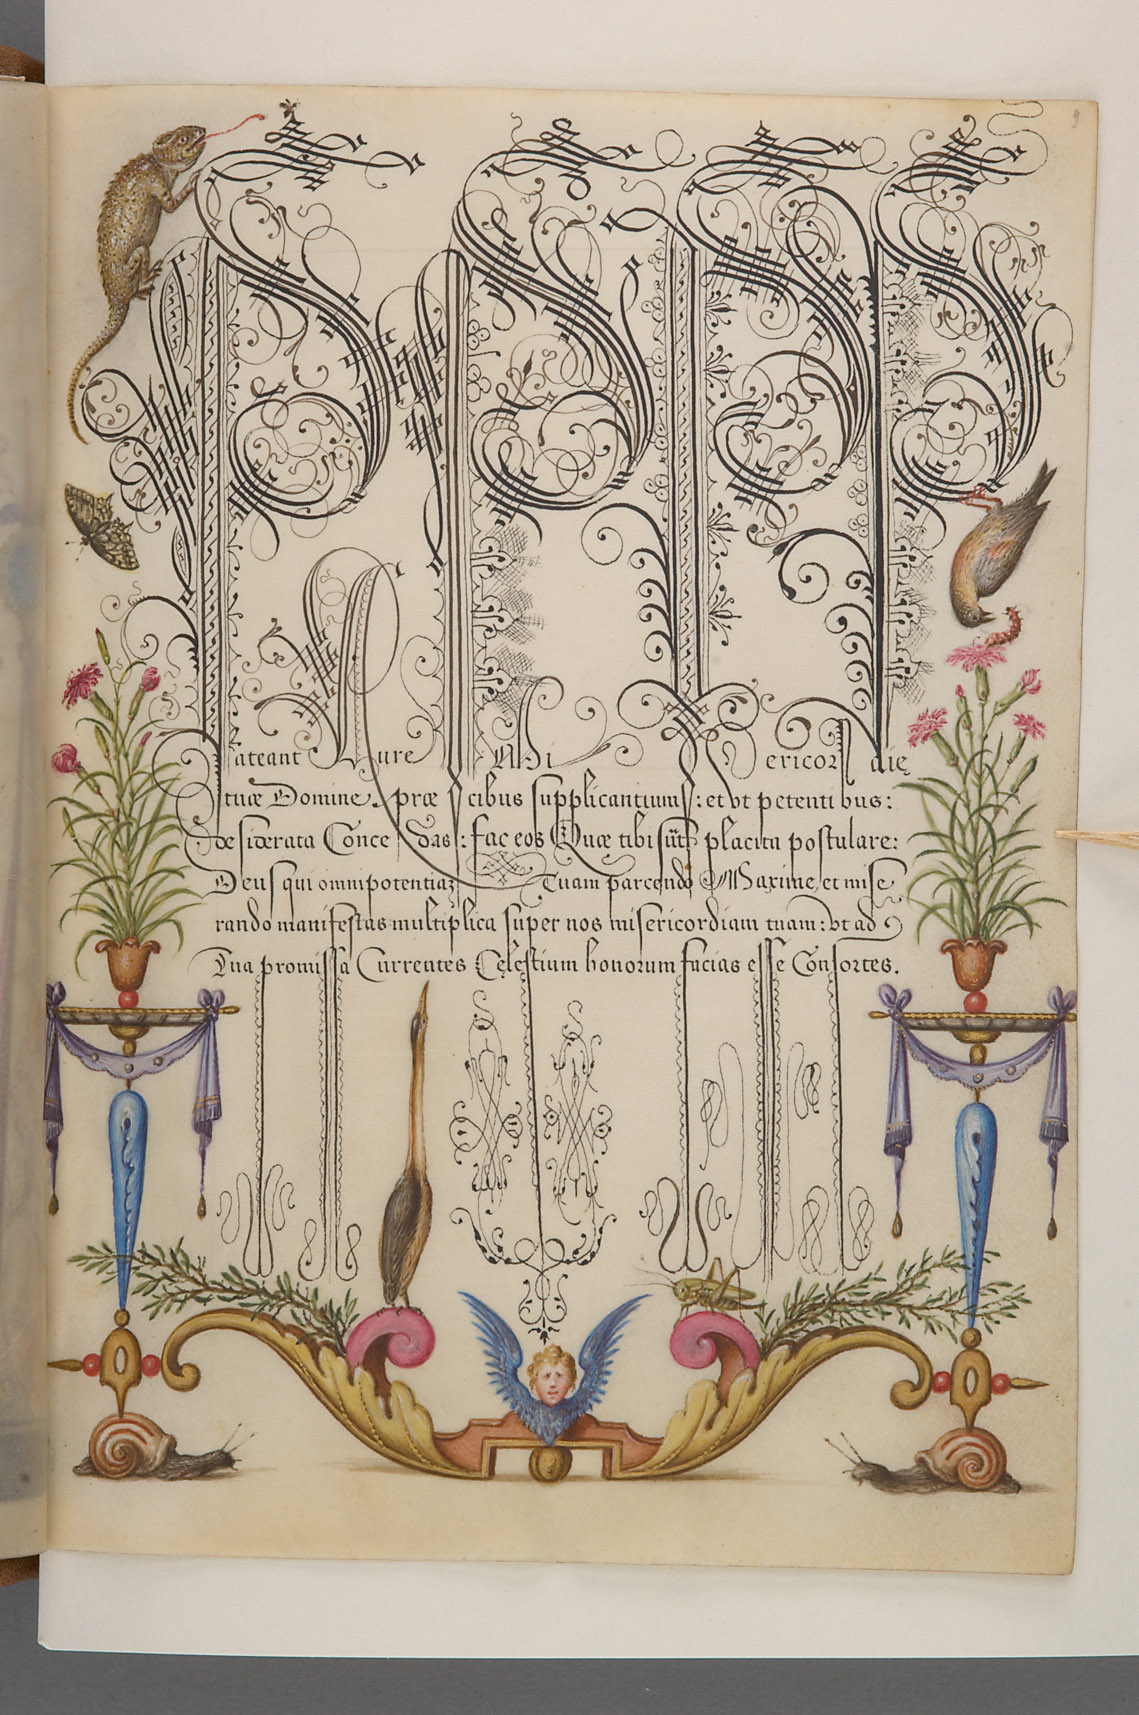 Pateant Aures Misericordię
tuæ Domine præcibus supplicantium: et vt petentibus:
desiderata Concedas: fac eos Quæ tibi sūt placita postulare:
Deus qui omnipotentiaȝ Tuam parcendo Maxime, et mise
rando manifestas multiplica super nos misericordiam tuam: vt ad
Tua promissa Currentes Cęlestium bonorum facias esse Consortes.
9